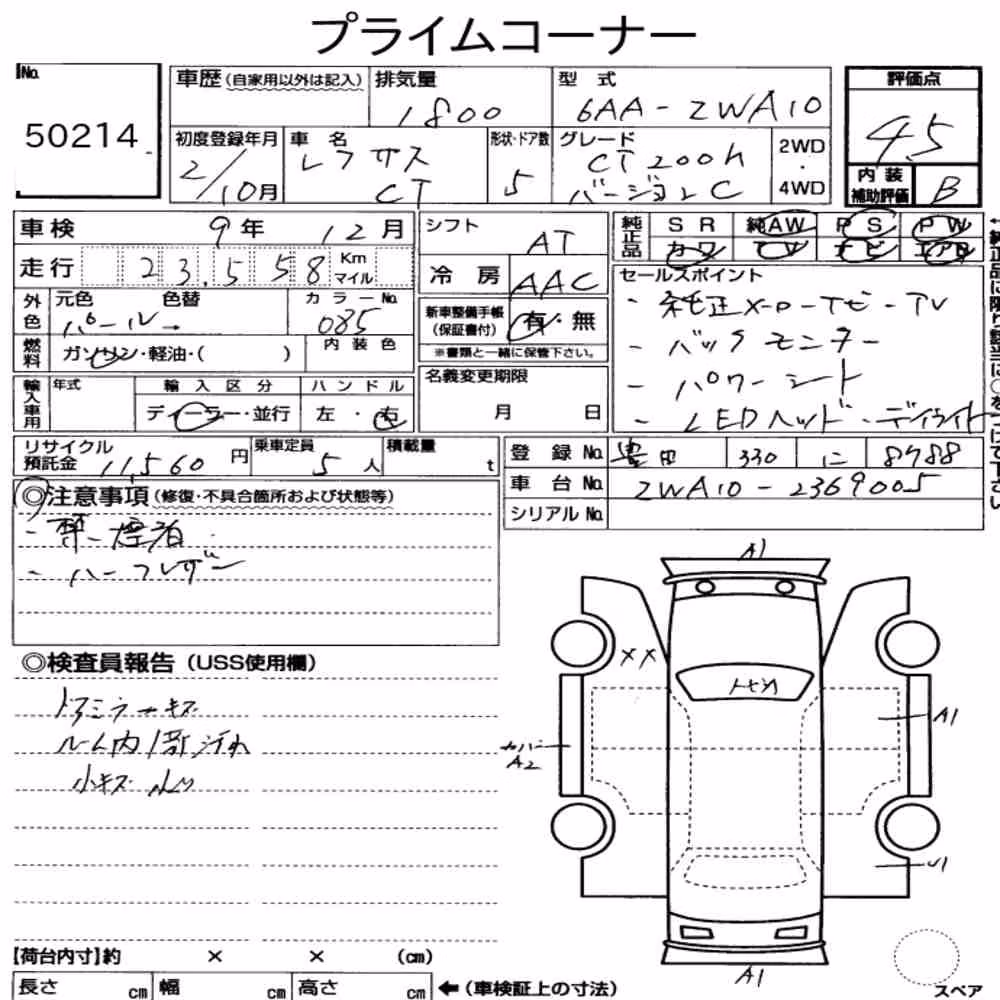 プライムコーナー
No.
50214
車歴 (自家用以外は記入)
排気量
1800
型 式
6AA-ZWA10
評価点
4.5
内装補助評価
B
初度登録年月
2/10月
車 名
レクサス
CT
形状・ドア数
5
グレード
CT200h
バージョンC
2WD
・
4WD
車検 9年 12月
走行 23,558 Km マイル
シフト AT
冷 房 AAC
純正品
S R 純AW P S P W
カワ TV ナビ エアB
外色
元色 色替
パール→
カラーNo.
085
燃料
ガソリン・軽油・( )
内 装 色
新車整備手帳
(保証書付)
有・無
※書類と一緒に保管下さい。
セールスポイント
- 純正メーカーナビ-TV
- バックモニター
- パワーシート
- LEDヘッド・デイライト
輸入車用
年式
輸 入 区 分
ディーラー・並行
ハンドル
左・右
名義変更期限
月 日
リサイクル預託金 11,560 円
乗車定員 5 人
積載量 t
登 録 No. 豊田 330 に 8788
車 台 No. ZWA10-2369005
シリアル No.
◎注意事項 (修復・不具合箇所および状態等)
- 禁煙車
- ハーフレザー
◎検査員報告 (USS使用欄)
ドアミラーキズ
ルーム内1部汚れ
小キズ
A1
××
トビ石
A1
カバー
A2
U1
A1
スペア
【荷台内寸】約 × × (cm)
長さ cm 幅 cm 高さ cm ← (車検証上の寸法)